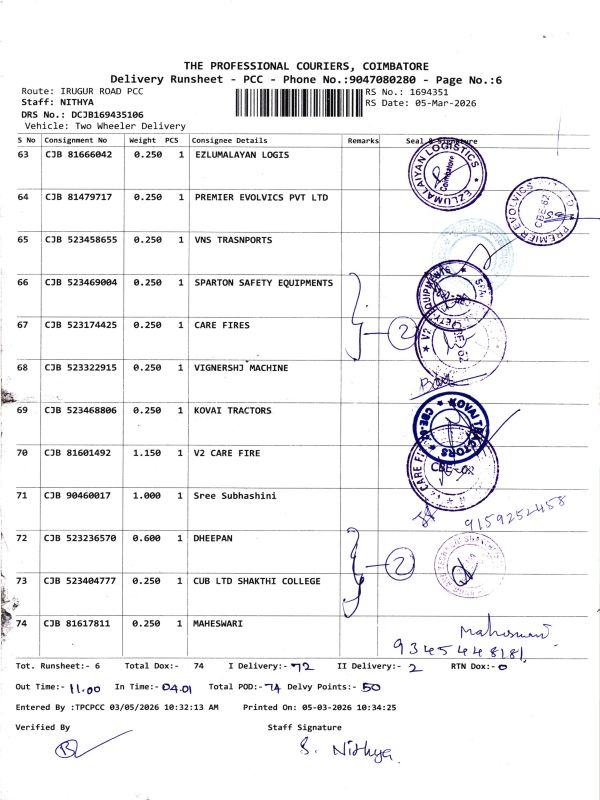 THE PROFESSIONAL COURIERS, COIMBATORE
Delivery Runsheet - PCC - Phone No.:9047080280 - Page No.:6
Route: IRUGUR ROAD PCC
RS No.: 1694351
Staff: NITHYA
RS Date: 05-Mar-2026
DRS No.: DCJB169435106
Vehicle: Two Wheeler Delivery
S No Consignment No Weight PCS Consignee Details Remarks Seal & Signature
63 CJB 81666042 0.250 1 EZLUMALAYAN LOGIS
EZLUMALAIYAN LOGISTICS Coimbatore
64 CJB 81479717 0.250 1 PREMIER EVOLVICS PVT LTD
PREMIER EVOLVICS CBE-62
65 CJB 523458655 0.250 1 VNS TRASNPORTS
66 CJB 523469004 0.250 1 SPARTON SAFETY EQUIPMENTS
67 CJB 523174425 0.250 1 CARE FIRES
2
V2
68 CJB 523322915 0.250 1 VIGNERSHJ MACHINE
69 CJB 523468806 0.250 1 KOVAI TRACTORS
KOVAI TRACTORS
70 CJB 81601492 1.150 1 V2 CARE FIRE
V2 CARE
71 CJB 90460017 1.000 1 Sree Subhashini
9159252458
72 CJB 523236570 0.600 1 DHEEPAN
2
73 CJB 523404777 0.250 1 CUB LTD SHAKTHI COLLEGE
74 CJB 81617811 0.250 1 MAHESWARI
9345448181
Tot. Runsheet:- 6 Total Dox:- 74 I Delivery:- 72 II Delivery:- 2 RTN Dox:- 0
Out Time:- 11.00 In Time:- 04.01 Total POD:- 74 Delvy Points:- 50
Entered By :TPCPCC 03/05/2026 10:32:13 AM Printed On: 05-03-2026 10:34:25
Verified By Staff Signature
S. Nithya